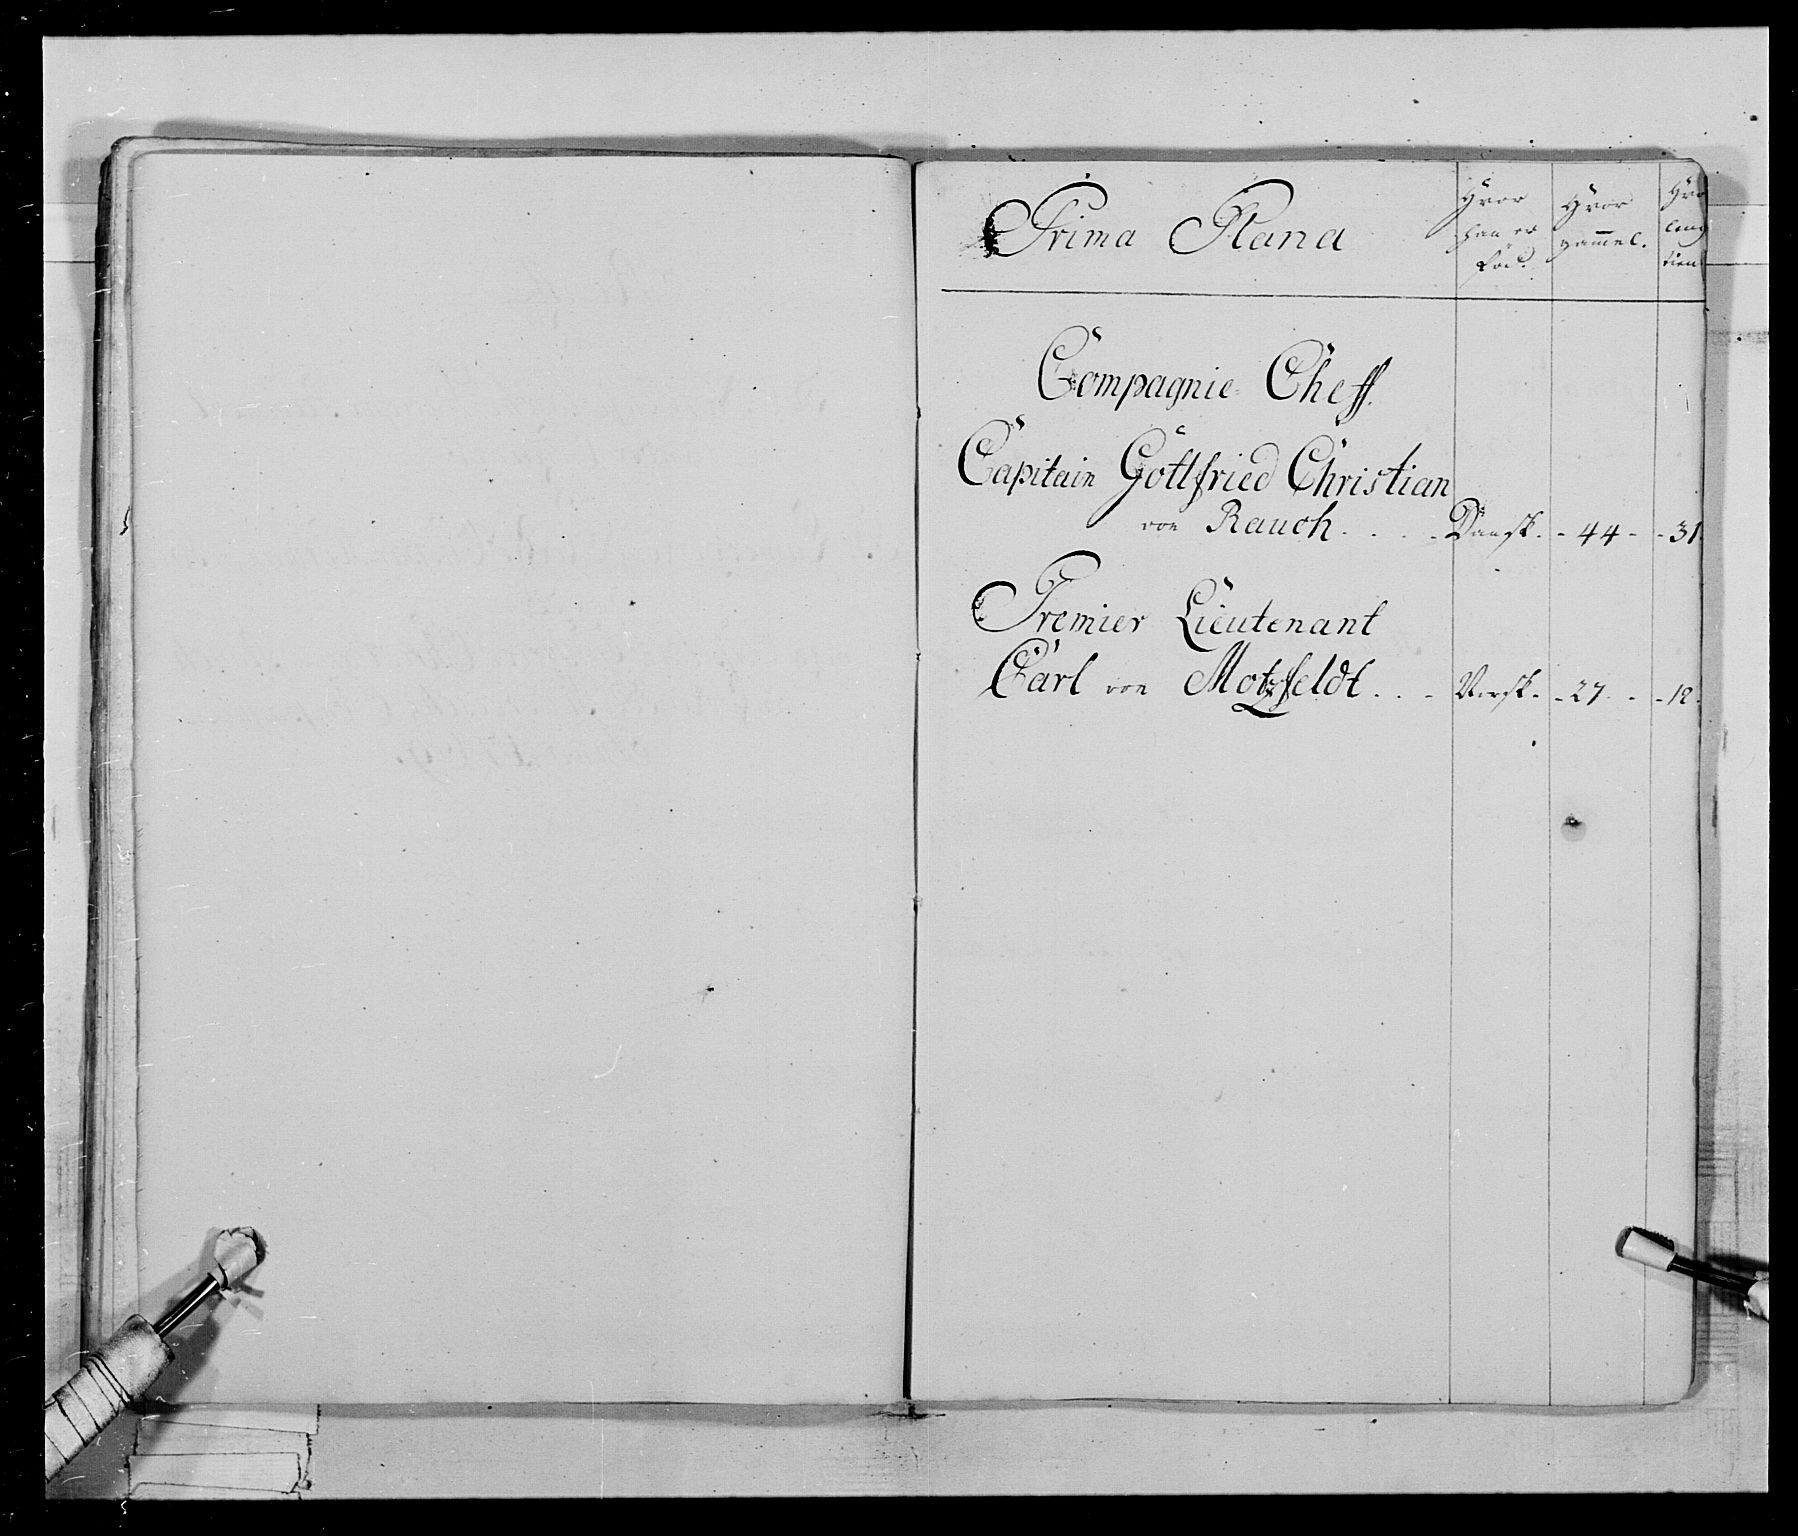 Prima Plana
Hvor han er Föd.
Hvor gammel.
Hvo leng tien
Compagnie Cheff.
Capitain Gottfried Christian
von Rauch. . . . Dansk. - 44 - - 31.
Premier Lieutenant
Carl von Motzfeldt. . . Norsk. - 27. - - 12.